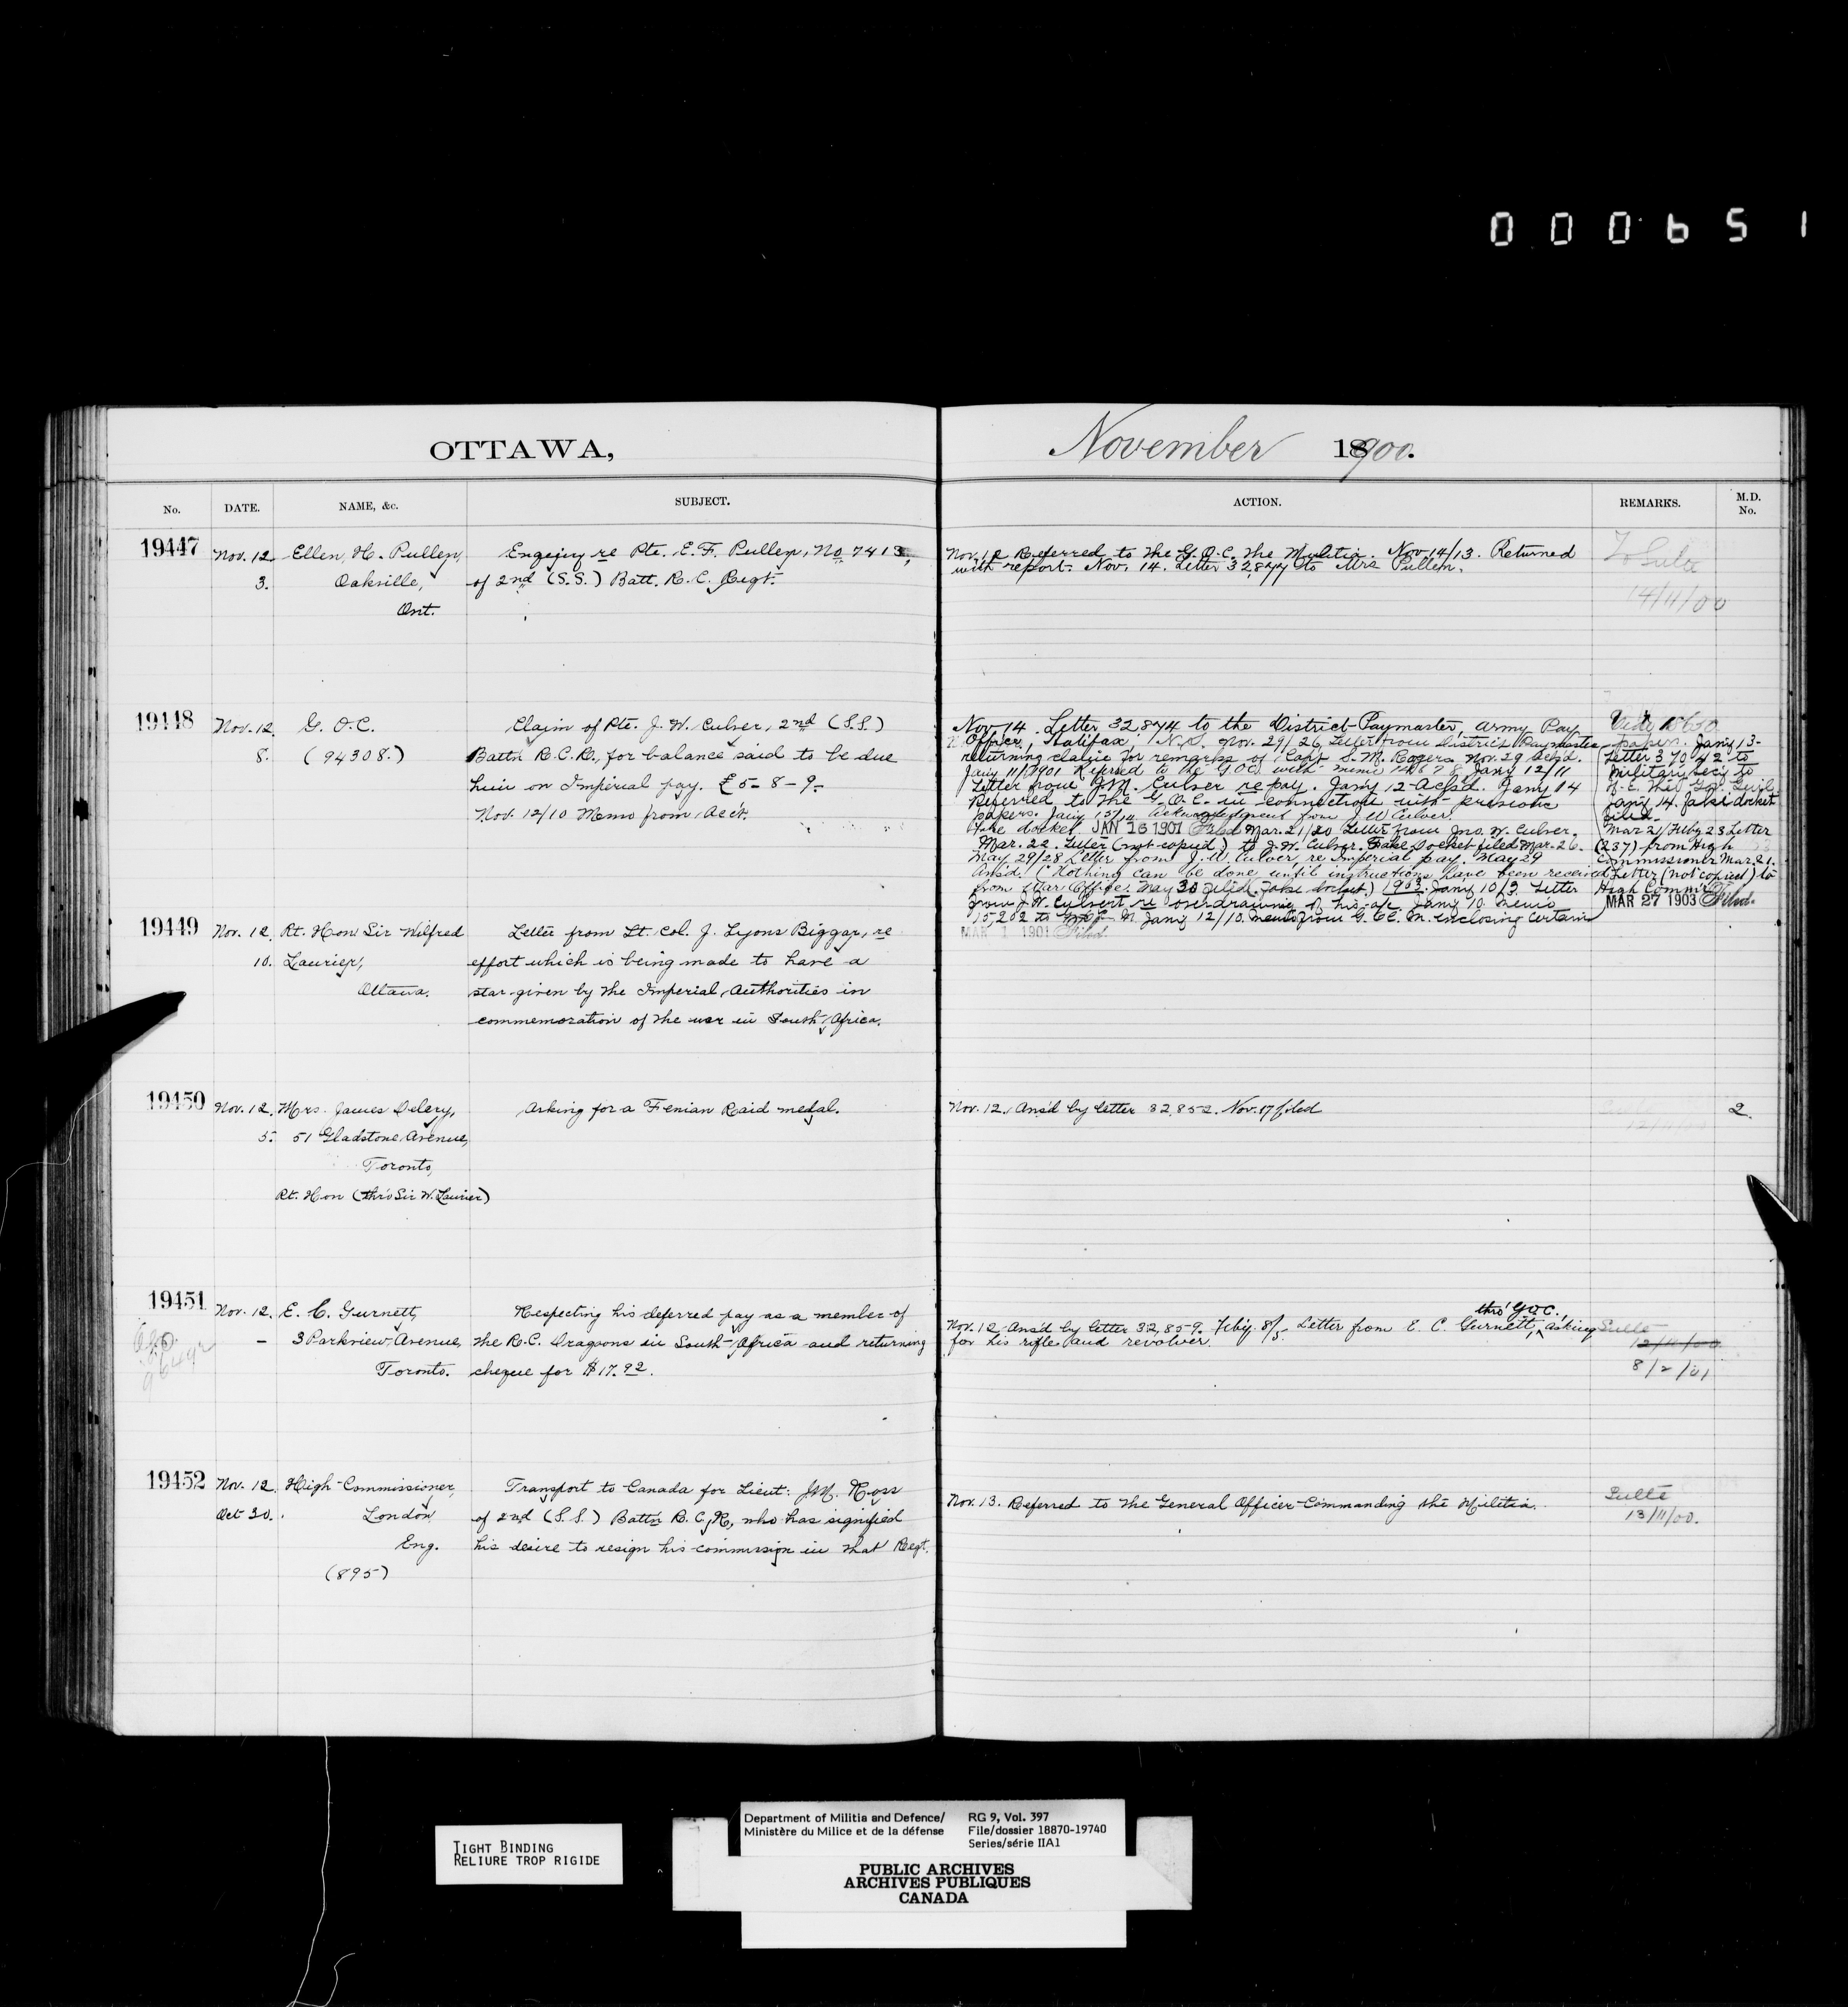 000651
OTTAWA,
November 1900.
No. DATE. NAME, &c. SUBJECT. ACTION. REMARKS. M.D. No.
19447
Nov. 12
3.
Ellen, H. Pullen,
Oakville,
Ont.
Enquiry re Pte. E. F. Pullen, No 7413,
of 2nd (S.S.) Batt. R. C. Regt.
Nov. 12 Referred to the G.O.C. the Militia. Nov. 14/13. Returned
with report. Nov. 14. Letter 32,877 to Mrs Pullen.
To Sulte
14/11/00
19448
Nov. 12
8.
G. O. C.
(94308.)
Claim of Pte. J. W. Culver, 2nd (S.S.)
Battn R.C.R., for balance said to be due
him on Imperial pay. £5-8-9.
Nov. 12/10 Memo from Acct.
Nov. 14. Letter 32,874 to the District Paymaster, Army Pay
Office, Halifax, N.S. Nov. 29/26 Letter from District Paymaster
returning claim for remarks of Capt S. M. Rogers Nov. 29 Ack'd.
Jany 11/1901 Referred to the GOC with memo Jany 12/11
Letter from J.W. Culver re pay. Jany 12 Ack'd. Jany 14
Referred to the G.O.C. in connection with previous
papers. Jany 15/14 Acknowledgment from J W Culver.
Fake docket JAN 16 1901 Filed Mar. 21/20 Letter from Jno. W. Culver.
Mar. 22. Letter (not copied) to J. W. Culver. Fake Docket filed Mar. 26.
May 29/28 Letter from J. W. Culver re Imperial pay. May 29
Ansd. (Nothing can be done until instructions have been received
from War Office. May 30 filed. Fake docket.) 1903. Jany 10/3 Letter
from J. W. Culvert re overdrawing of his a/c Jany 10 Memo
15202 to M. Jany 12/10. Memo from G. O.C. M. enclosing certain
MAR 1 1901 Filed.
Vide 18650
papers. Jany 13-
Letter 37042 to
Military Sec'y to
H. E. The Gov. Genl.
Jany 14. Fake docket
filed.
Mar 21/Feby 23 Letter
(237) from High
Commissioner Mar. 21.
Letter (not copied) to
High Commr.
MAR 27 1903 Filed.
19449
Nov. 12.
10.
Rt. Hon Sir Wilfred
Laurier,
Ottawa.
Letter from Lt. Col. J. Lyons Biggar, re
effort which is being made to have a
star given by the Imperial Authorities in
commemoration of the war in South Africa.
19450
Nov. 12.
5.
Mrs. James Delery,
51 Gladstone Avenue,
Toronto,
Rt. Hon (thro Sir W. Laurier)
Asking for a Fenian Raid medal.
Nov. 12. Ans'd by letter 32,852. Nov. 17 filed
2.
19451
Nov. 12.
–
E. C. Gurnett,
3 Parkview Avenue,
Toronto.
Respecting his deferred pay as a member of
the R.C. Dragoons in South Africa and returning
cheque for $17.92.
thro' G.O.C.,
Nov. 12 Ans'd by letter 32,859. Feby. 8/5. Letter from E. C. Gurnett, asking
for his rifle and revolver.
Sulte
12/11/00
8/2/01
19452
Nov. 12
Oct 30.
High Commissioner,
London
Eng.
(895)
Transport to Canada for Lieut: J.M. Ross
of 2nd (S.S.) Battn R.C.R., who has signified
his desire to resign his commission in that Regt.
Nov. 13. Referred to the General Officer Commanding the Militia.
Sulte
13/11/00.
TIGHT BINDING
RELIURE TROP RIGIDE
Department of Militia and Defence/
Ministère du Milice et de la défense
RG 9, Vol. 397
File/dossier 18870-19740
Series/série IIA1
PUBLIC ARCHIVES
ARCHIVES PUBLIQUES
CANADA